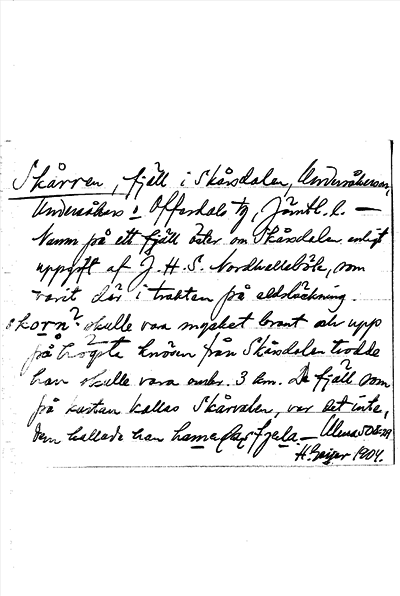 Skårren, fjäll i Skårsdalen, Undersåkers sn,
Undersåkers o Offerdals tg, Jämtl. l. —
Namn på ett fjäll öster om Skårsdalen enligt
uppgift af J. H. S. som
varit där i trakten på eldsläckning.
skorn? skulle vara mycket brant och upp
på högste knösen från Skårsdalen trodde
han skulle vara omkr. 3 km. De fjäll som
på kartan kallas Skårvalen, var det inte,
dem kallade han —
H. Geijer 1904.